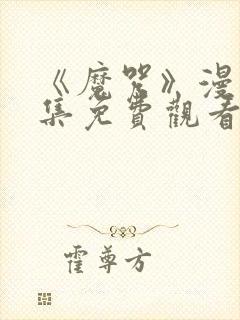 《魔咒》漫
集免費觀看
霍尊方